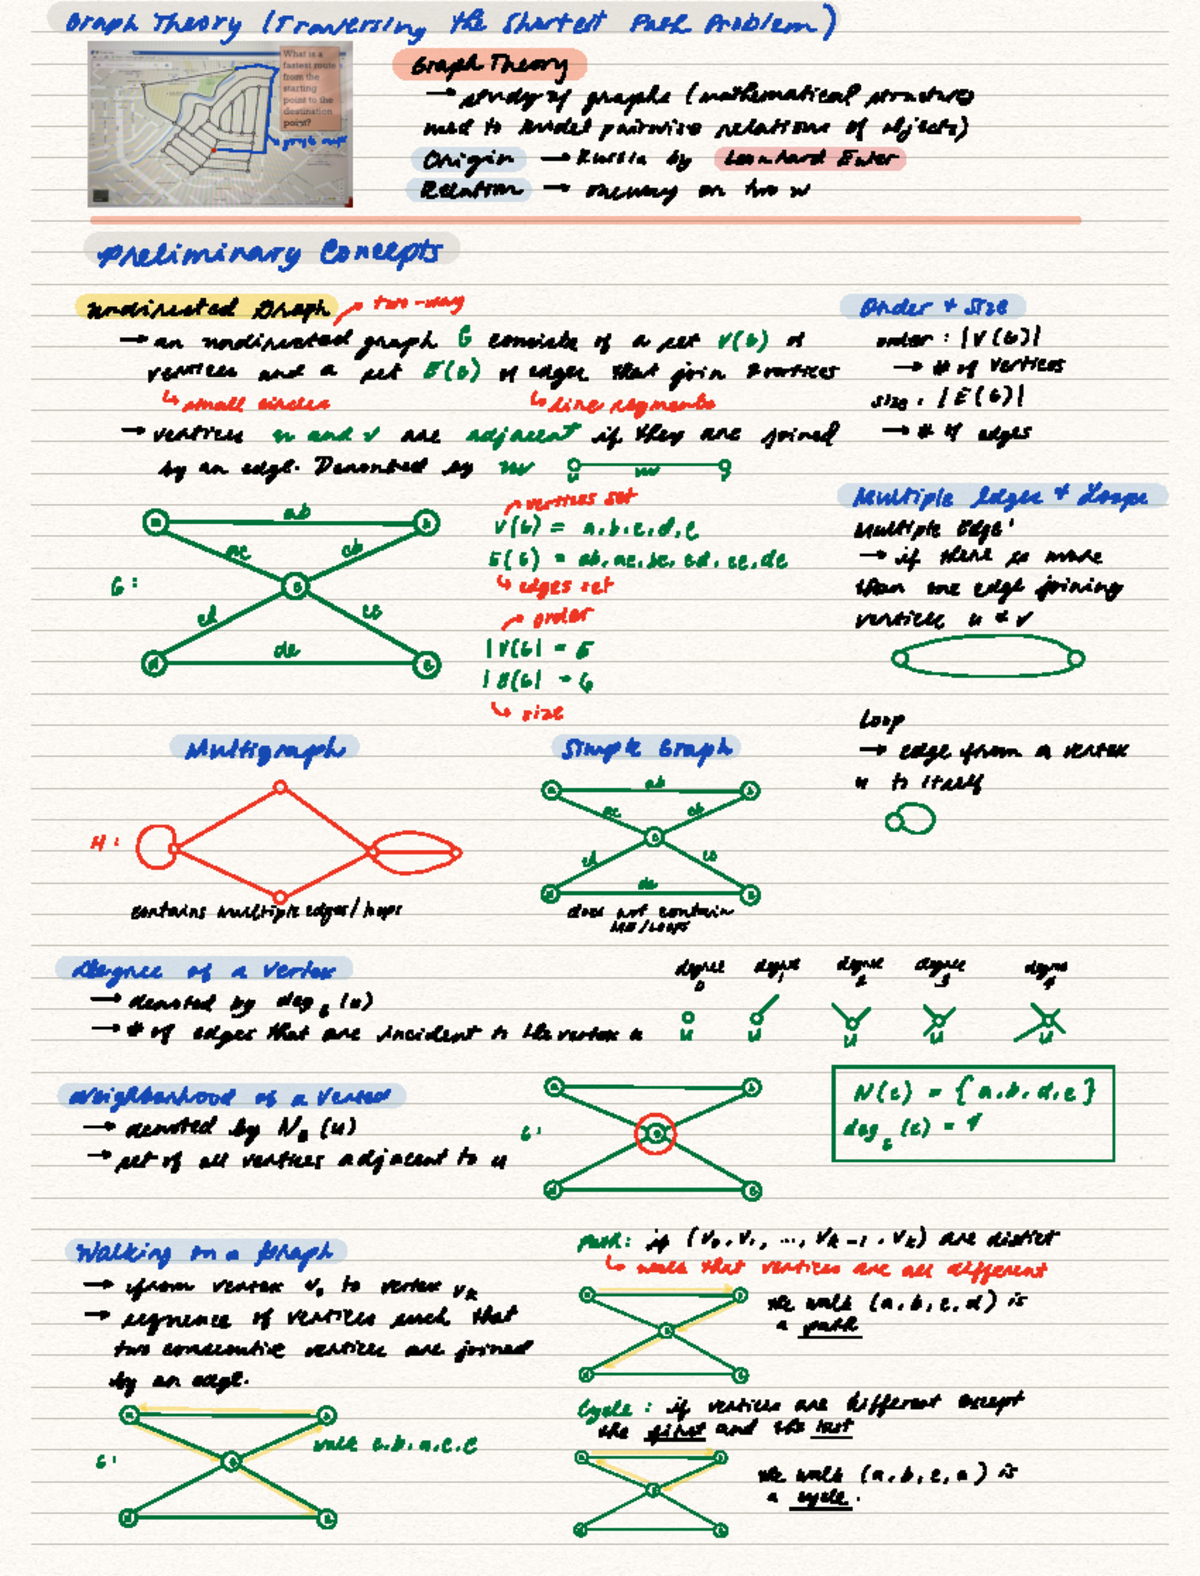 Graph Theory (Traversing the Shortest Path Problem)
What is a
fastest route
from the
starting
point to the
destination
point?
Graph Theory
→ study of graphs (mathematical structures
used to model pairwise relations of objects)
Origin → Russia by Leonhard Euler
Relation → oneway or two w
Preliminary Concepts
undirected Graph → two-way
→ an undirected graph G consists of a set V(G) of
vertices and a set E(G) of edges that join 2 vertices
↳ small circles ↳ line segments
→ vertices u and v are adjacent if they are joined
by an edge. Denonted by uv
u uv v
Order + Size
order : |V(G)|
→ # of vertices
size : |E(G)|
→ # of edges
G :
a ab b
ac cb
c
cd ce
d de e
→ vertices set
V(G) = a,b,c,d,e
E(G) = ab, ac, bc, cd, ce, de
↳ edges set
→ order
|V(G)| = 5
|E(G)| = 6
↳ size
Multiple edges + Loops
Multiple Edge'
→ if there is more
than one edge joining
vertices u & v
Loop
→ edge from a vertex
u to itself
Multigraph
H :
contains multiple edges/loops
Simple Graph
a ab b
ac cb
c
cd ce
d de e
does not contain
ME/LOOPS
Degree of a Vertex
→ denoted by deg G (u)
→ # of edges that are incident to the vertex u
degree 0 degree 1 degree 2 degree 3 degree 4
u u u u u
Neighborhood of a Vertex
→ denoted by N G (u)
→ set of all vertices adjacent to u
G:
a b
c
d e
N(c) = {a,b,d,e}
deg G (c) = 4
Walking on a Graph
→ from vertex v₀ to vertex vk
→ sequence of vertices such that
two consecutive vertices are joined
by an edge.
G:
a b
c
d e
walk c,b,a,c,e
Path: if (v₀, v₁, ..., vk-1, vk) are distict
↳ walk that vertices are all different
a b
c
d e
the walk (a,b,c,d) is
a path
Cycle : if vertices are different except
the first and the last
a b
c
d e
the walk (a,b,c,a) is
a cycle.